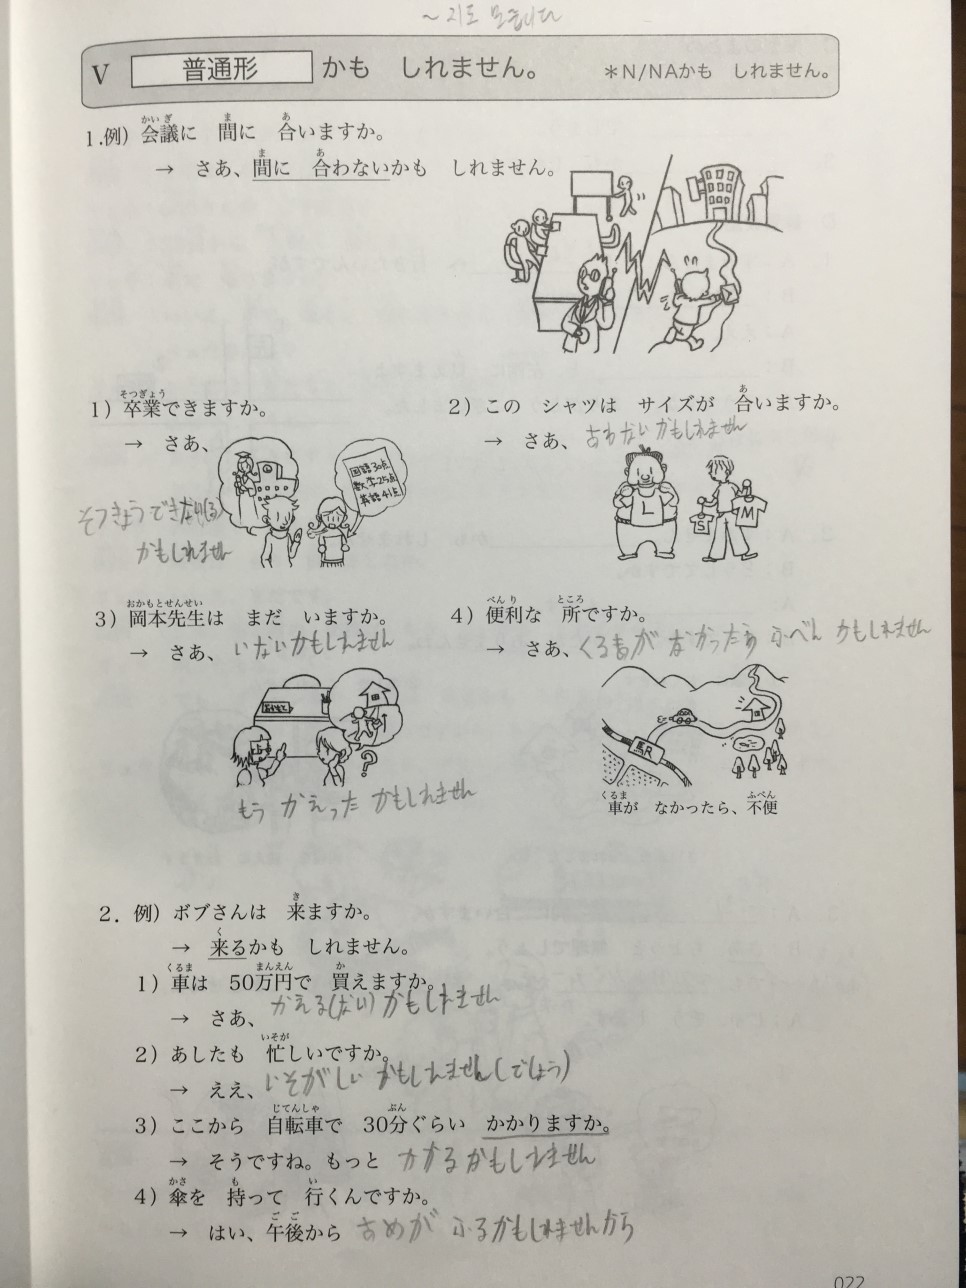 ~지도 모릅니다
V 普通形 かも しれません。 ＊N/NAかも しれません。
1.例）会議に 間に 合いますか。
→ さあ、間に 合わないかも しれません。
1）卒業できますか。
→ さあ、
そつぎょうできない(る)
かもしれません
国語30点
数学25点
英語41点
2）この シャツは サイズが 合いますか。
→ さあ、あわないかもしれません
L
S
M
3）岡本先生は まだ いますか。
→ さあ、いないかもしれません
おかもと
?
もう かえった かもしれません
4）便利な 所ですか。
→ さあ、くるまが なかったら ふべん かもしれません
駅
車が なかったら、不便
2．例）ボブさんは 来ますか。
→ 来るかも しれません。
1）車は 50万円で 買えますか。
→ さあ、かえる(ない)かもしれません
2）あしたも 忙しいですか。
→ ええ、いそがしい かもしれません(でしょう)
3）ここから 自転車で 30分ぐらい かかりますか。
→ そうですね。もっと かかるかもしれません
4）傘を 持って 行くんですか。
→ はい、午後から あめが ふるかもしれませんから
022